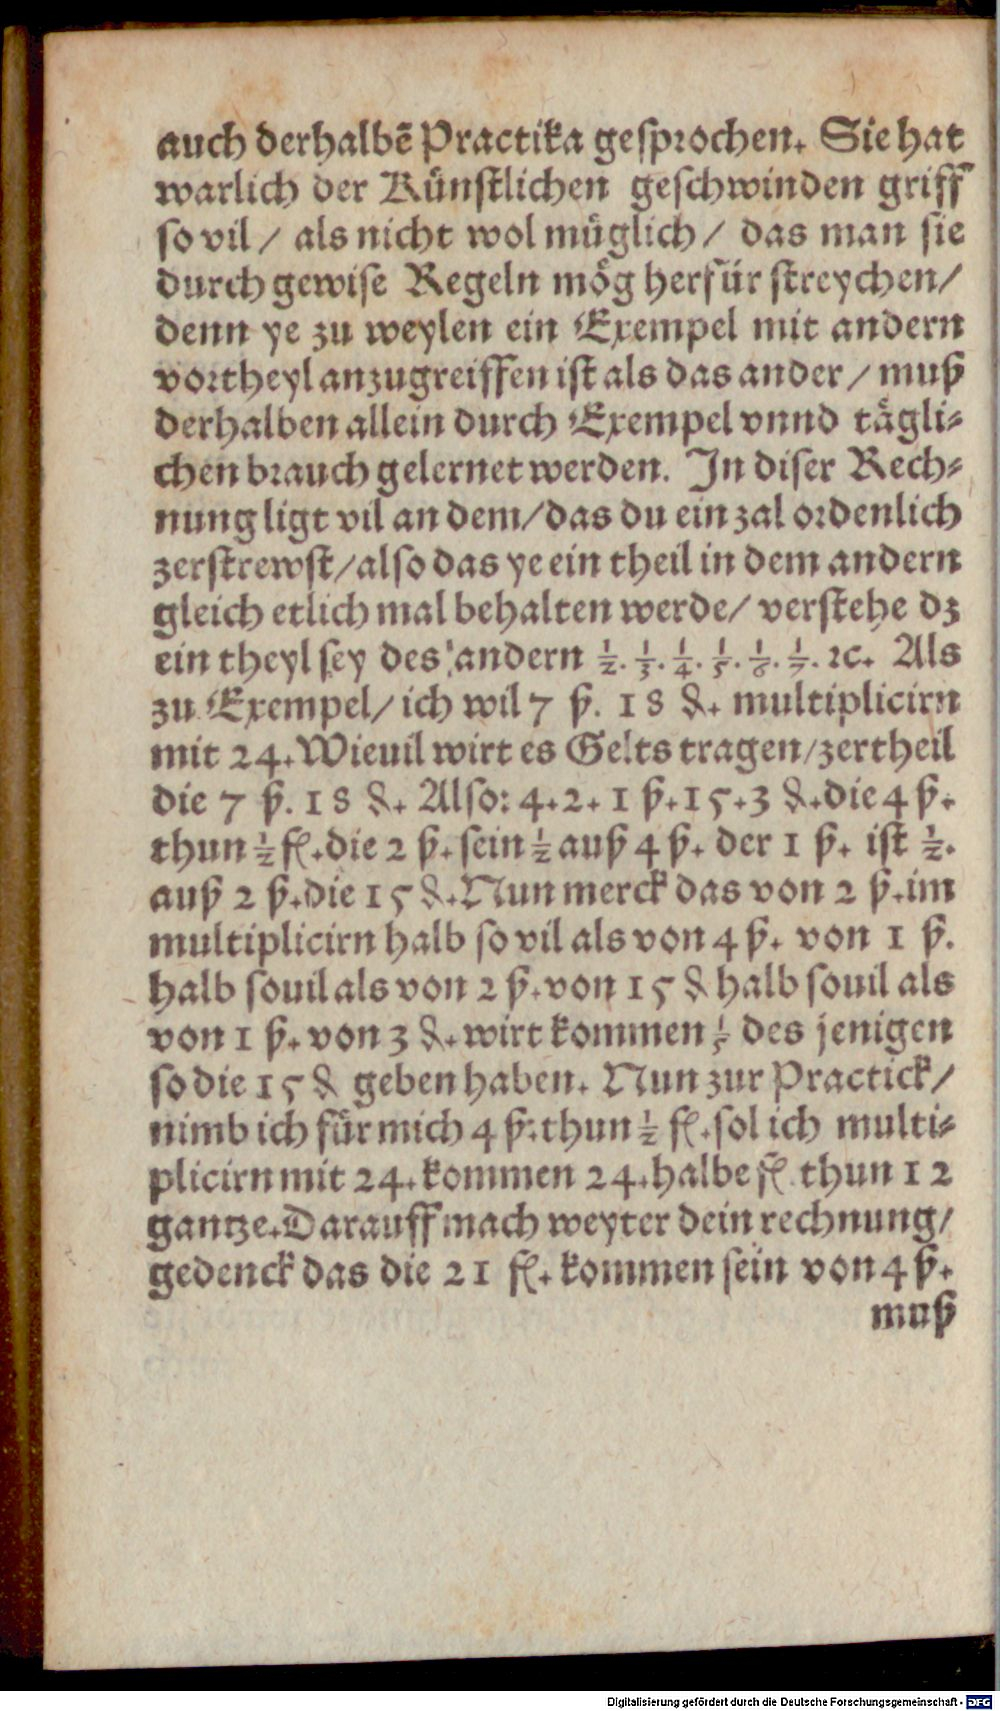 auch derhalbẽ Practika gesprochen. Sie hat
warlich der Künstlichen geschwinden griff
so vil / als nicht wol müglich / das man sie
durch gewise Regeln mög herfür streychen /
denn ye zu weylen ein Exempel mit andern
vortheyl anzugreiffen ist als das ander / muß
derhalben allein durch Exempel vnnd tägli-
chen brauch gelernet werden. In diser Rech-
nung ligt vil an dem / das du ein zal ordenlich
zerstrewst / also das ye ein theil in dem andern
gleich etlich mal behalten werde / verstehe dz
ein theyl sey des andern ½. ⅓. ¼. ⅕. ⅙. ⅐. ꝛc. Als
zu Exempel / ich wil 7 ß. 18 ₰. multiplicirn
mit 24. Wieuil wirt es Gelts tragen / zertheil
die 7 ß. 18 ₰. Also: 4. 2. 1 ß. 15. 3 ₰. die 4 ß.
thun ½ fl. die 2 ß. sein ½ auß 4 ß. der 1 ß. ist ½.
auß 2 ß. die 15 ₰. Nun merck das von 2 ß. im
multiplicirn halb so vil als von 4 ß. von 1 ß.
halb souil als von 2 ß. von 15 ₰ halb souil als
von 1 ß. von 3 ₰. wirt kommen ⅕ des jenigen
so die 15 ₰ geben haben. Nun zur Practick /
nimb ich für mich 4 ß. thun ½ fl. sol ich multi-
plicirn mit 24. kommen 24. halbe fl. thun 12
gantze. Darauff mach weyter dein rechnung /
gedenck das die 21 fl. kommen sein von 4 ß.
muß
Digitalisierung gefördert durch die Deutsche Forschungsgemeinschaft - DFG